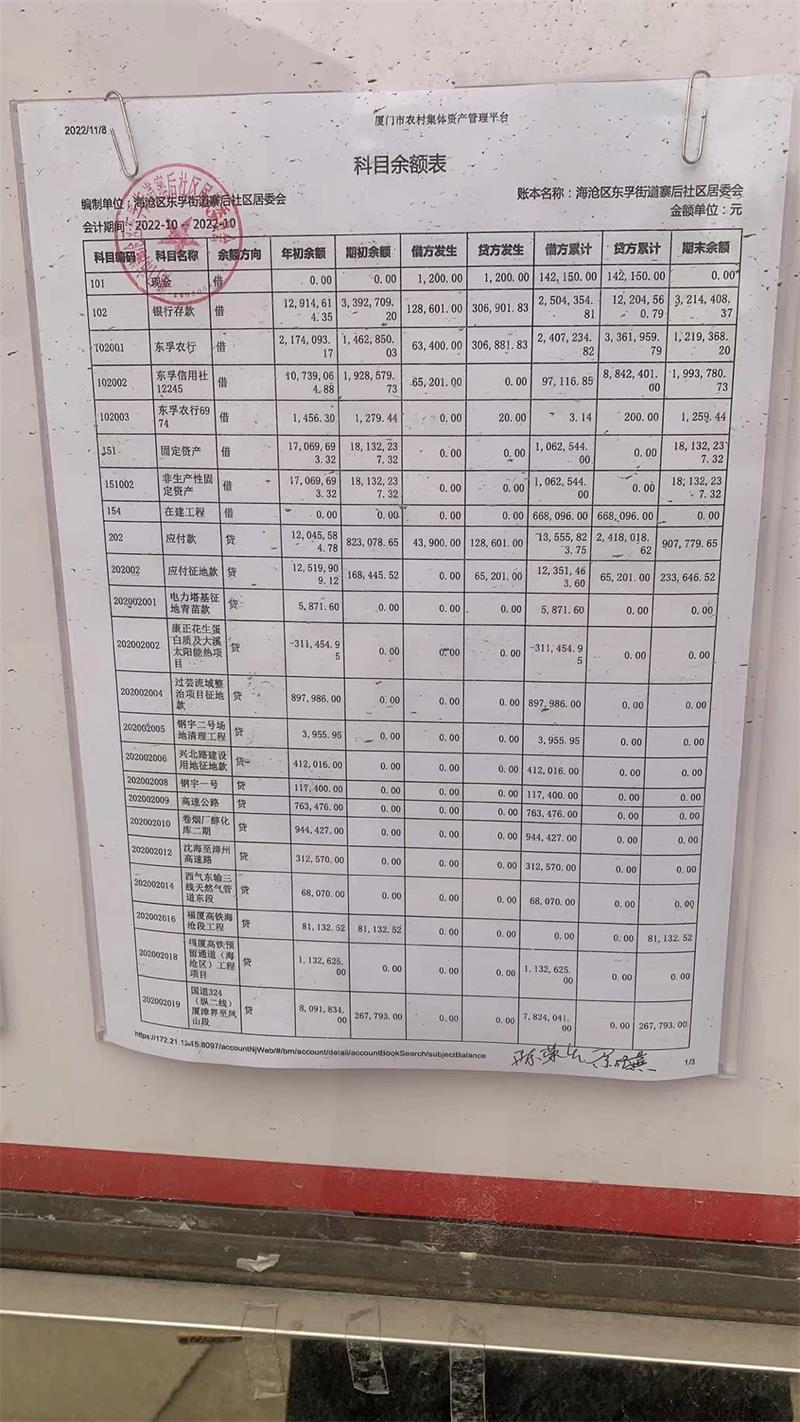 2022/11/8 厦门市农村集体资产管理平台
科目余额表
编制单位：海沧区东孚街道寨后社区居委会 账本名称：海沧区东孚街道寨后社区居委会
会计期间：2022-10 - 2022-10 金额单位：元
科目编码 科目名称 余额方向 年初余额 期初余额 借方发生 贷方发生 借方累计 贷方累计 期末余额
101 现金 借 0.00 0.00 1,200.00 1,200.00 142,150.00 142,150.00 0.00
102 银行存款 借 12,914,614.35 3,392,709.20 128,601.00 306,901.83 2,504,354.81 12,204,560.79 3,214,408.37
102001 东孚农行 借 2,174,093.17 1,462,850.03 63,400.00 306,881.83 2,407,234.82 3,361,959.79 1,219,368.20
102002 东孚信用社12245 借 10,739,064.88 1,928,579.73 65,201.00 0.00 97,116.85 8,842,401.00 1,993,780.73
102003 东孚农行6974 借 1,456.30 1,279.44 0.00 20.00 3.14 200.00 1,259.44
151 固定资产 借 17,069,693.32 18,132,237.32 0.00 0.00 1,062,544.00 0.00 18,132,237.32
151002 非生产性固定资产 借 17,069,693.32 18,132,237.32 0.00 0.00 1,062,544.00 0.00 18,132,237.32
154 在建工程 借 0.00 0.00 0.00 0.00 668,096.00 668,096.00 0.00
202 应付款 贷 12,045,584.78 823,078.65 43,900.00 128,601.00 13,555,823.75 2,418,018.62 907,779.65
202002 应付征地款 贷 12,519,909.12 168,445.52 0.00 65,201.00 12,351,463.60 65,201.00 233,646.52
202002001 电力塔基征地青苗款 贷 5,871.60 0.00 0.00 0.00 5,871.60 0.00 0.00
202002002 康正花生蛋白质及大溪太阳能热项目 贷 -311,454.95 0.00 0.00 0.00 -311,454.95 0.00 0.00
202002004 过芸流域整治项目征地款 贷 897,986.00 0.00 0.00 0.00 897,986.00 0.00 0.00
202002005 钢宇二号场地清理工程 贷 3,955.95 0.00 0.00 0.00 3,955.95 0.00 0.00
202002006 兴北路建设用地征地款 贷 412,016.00 0.00 0.00 0.00 412,016.00 0.00 0.00
202002008 钢宇一号 贷 117,400.00 0.00 0.00 0.00 117,400.00 0.00 0.00
202002009 高速公路 贷 763,476.00 0.00 0.00 0.00 763,476.00 0.00 0.00
202002010 卷烟厂醇化库二期 贷 944,427.00 0.00 0.00 0.00 944,427.00 0.00 0.00
202002012 沈海至漳州高速路 贷 312,570.00 0.00 0.00 0.00 312,570.00 0.00 0.00
202002014 西气东输三线天然气管道东段 贷 68,070.00 0.00 0.00 0.00 68,070.00 0.00 0.00
202002016 福厦高铁海沧段工程 贷 81,132.52 81,132.52 0.00 0.00 0.00 0.00 81,132.52
202002018 福厦高铁预留通道（海沧区）工程项目 贷 1,132,625.00 0.00 0.00 0.00 1,132,625.00 0.00 0.00
202002019 国道324（纵二线）厦漳界至凤山段 贷 8,091,834.00 267,793.00 0.00 0.00 7,824,041.00 0.00 267,793.00
1/3